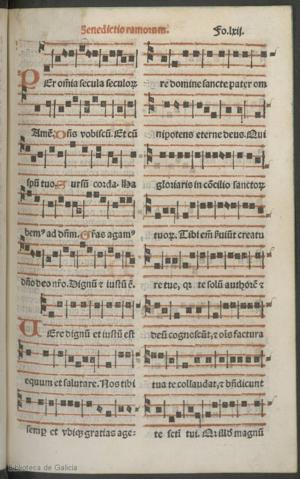 Benedictio ramorum. Fo.lxij.
PEr om̄ia secula seculoꝝ
Amē. Dn̄s vobiscū. Et cū
spū tuo. Sursū corda. Ha
bem⁹ ad dn̄m. Gr̄as agam⁹
dn̄o deo nr̄o. Dignū ⁊ iustū ē.
VEre dignū et iustū est
equum et salutare. Nos tibi
semꝑ et vbiqȝ gratias age-
re domine sancte pater om
nipotens eterne deus. Qui
gloriaris in cōcilio sanctoꝝ
tuoꝝ. Tibi em̄ ẜuiūt creatu
re tue, qȝ te solū authorē ⁊
deū cognoscūt, ⁊ oīs factura
tua te collaudat, ⁊ bn̄dicunt
te sc̄ti tui. Qr̄ illō magnū
Biblioteca de Galicia